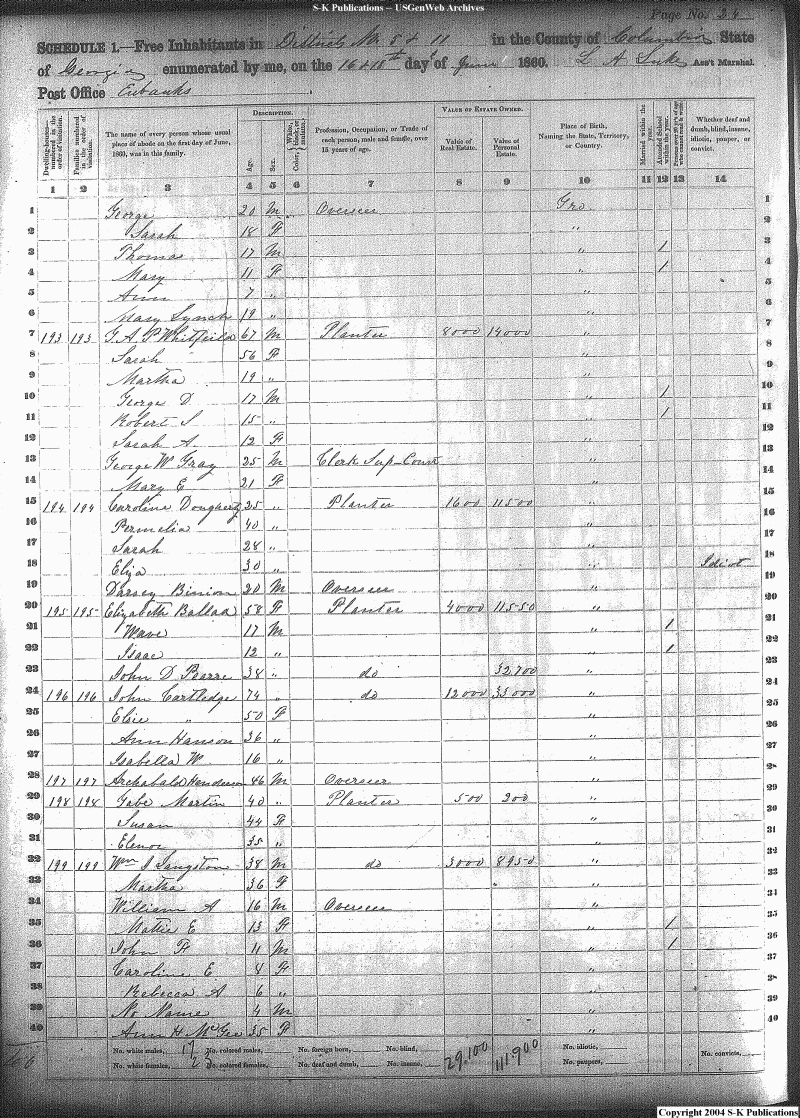 S-K Publications -- USGenWeb Archives
Page No. 24
SCHEDULE 1.—Free Inhabitants in Districts No. 8 & 11 in the County of Columbia State
of Georgia enumerated by me, on the 16 & 18th day of June 1860. L A Luke Ass't Marshal.
Post Office Eubanks
Dwelling-houses numbered in the order of visitation. Families numbered in the order of visitation. The name of every person whose usual place of abode on the first day of June, 1860, was in this family. DESCRIPTION. Age. Sex. Color, White, black, or mulatto. Profession, Occupation, or Trade of each person, male and female, over 15 years of age. VALUE OF ESTATE OWNED. Value of Real Estate. Value of Personal Estate. Place of Birth, Naming the State, Territory, or Country. Married within the year. Attended School within the year. Whether deaf and dumb, blind, insane, idiotic, pauper, or convict.
1 2 3 4 5 6 7 8 9 10 11 12 13 14
1 George 20 M Overseer Geo 1
2 Sarah 18 F " 2
3 Thomas 17 M " / 3
4 Mary 11 F " / 4
5 Ann 7 " " 5
6 Mary Lynch 19 " " 6
7 193 193 G. A. P Whitfield 67 M Planter 8000 14000 " 7
8 Sarah 56 F " 8
9 Martha 19 " " 9
10 George D. 17 M " / 10
11 Robert S 15 " " / 11
12 Sarah A. 12 F " 12
13 George W Gray 25 M Clerk Sup-Court " 13
14 Mary E 21 F " 14
15 194 194 Caroline Dougherty 25 " Planter 1600 11500 " 15
16 Permelia 40 " " 16
17 Sarah 28 " " 17
18 Eliza 30 " " Idiot 18
19 Darsey Binion 20 M Overseer " 19
20 195 195 Elizabeth Ballad 58 F Planter 4000 11550 " 20
21 Wave 17 M " / 21
22 Isaac 12 " " / 22
23 John D Pearre 38 " do 32,700 " 23
24 196 196 John Cartledge 74 " do 12000 33000 " 24
25 Elsie " 50 F " 25
26 Ann Hanson 36 " " 26
27 Isabella W. 16 " " 27
28 197 197 Archabald Henderson 46 M Overseer " 28
29 198 198 Gabe Martin 40 " Planter 500 200 " 29
30 Susan 44 F " 30
31 Elenor 35 " " 31
32 199 199 Wm J Langston 38 M do 3000 8950 " 32
33 Martha 36 F " 33
34 William A 16 M Overseer " 34
35 Mattie E 13 F " / 35
36 John F 11 M " / 36
37 Caroline E 8 F " 37
38 Rebecca A 6 " " 38
39 No Name 4 M " 39
40 Ann H McGee 35 F " 40
No. white males, 17 No. colored males, No. foreign born, No. blind, 29,100 111,900 No. idiotic, No. convicts,
No. white females, 23 No. colored females, No. deaf and dumb, No. insane, No. paupers,
Copyright 2004 S-K Publications